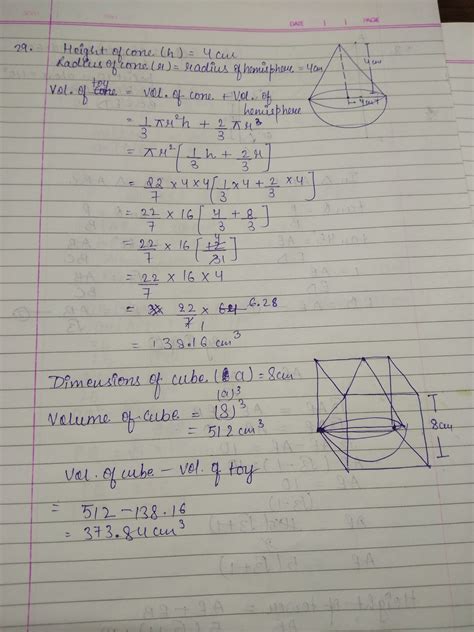 DATE PAGE
29. Height of cone (h) = 4 cm
Radius of cone (r) = radius of hemisphere = 4 cm
4 cm
4 cm
Vol. of toy = Vol. of cone + Vol. of hemisphere
= 1/3 πr²h + 2/3 πr³
= πr² [1/3 h + 2/3 r]
= 22/7 × 4 × 4 [1/3 × 4 + 2/3 × 4]
= 22/7 × 16 [4/3 + 8/3]
= 22/7 × 16 [12/3] 4 1
= 22/7 × 16 × 4
= 22/7 × 64 6.28 1
= 138.16 cm³
Dimensions of cube (a) = 8cm
Volume of cube = (a)³
(8)³
= 512 cm³
8cm
Vol. of cube - Vol. of toy
= 512 - 138.16
= 373.84 cm³